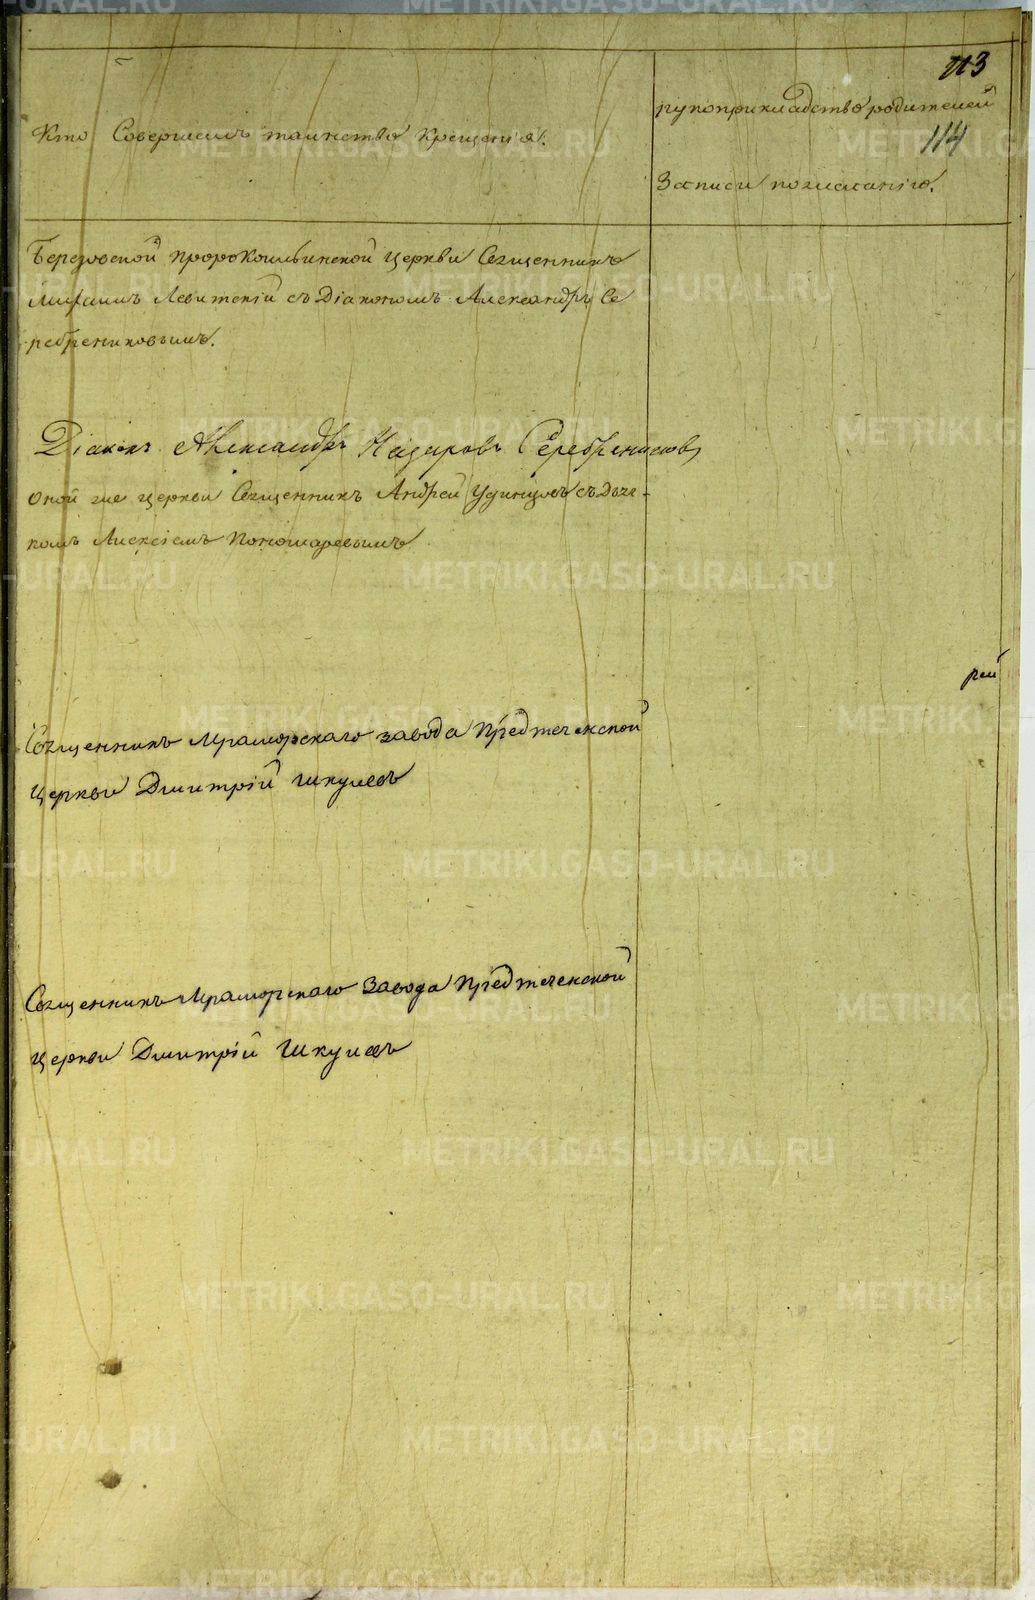 113
рукоприкладство родителей
114
Кто Совершилъ таинство Крещенія.
Записи пожеланію.
Березовской Пророкоильинской Церкви Священникъ
Левитскій съ Діакономъ Александръ Се
ребрениковымъ.
Діаконъ Александръ Назаровъ Серебрениковъ
Оной же церкви Священникъ Андрей Удинцовъ съ Дьяч-
комъ Алексіемъ Пономаревымъ
рей
Священникъ Мраморскаго завода Предтеченской
Церкви Дмитрій Шкулевъ
Священникъ Мраморскаго Завода Предтеченской
Церкви Дмитрій Шкулевъ
METRIKI.GASO-URAL.RU